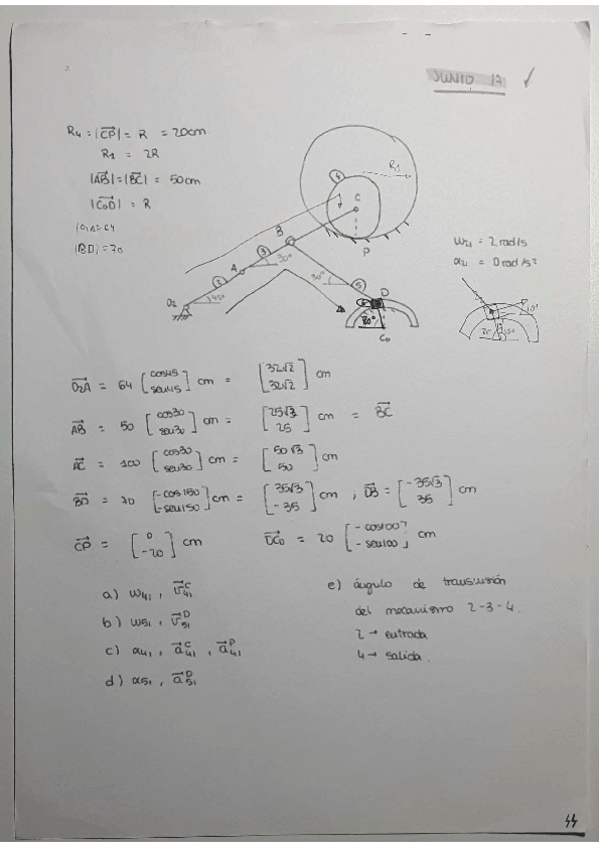 JUNIO 17 ✓
R₄ = |CP| = R = 20cm
R₁ = 2R
|AB| = |BC| = 50cm
|C₀D| = R
|O₂A| = 64
|BD| = 70
4
R₁
C
P
B
3
A
30°
2
O₂
45°
30°
5
D
6
80°
C₀
ω₂₁ = 2 rad/s
α₂₁ = 0 rad/s²
10°
O₂A = 64 [cos45 sen45] cm = [32√2 32√2] cm
AB = 50 [cos30 sen30] cm = [25√3 25] cm = BC
AC = 100 [cos30 sen30] cm = [50√3 50] cm
BD = 70 [-cos150 -sen150] cm = [35√3 -35] cm ; DB = [-35√3 35] cm
CP = [0 -20] cm DC₀ = 20 [-cos100 -sen100] cm
a) ω₄₁ , v₄₁ᶜ
b) ω₅₁ , v₅₁ᴰ
c) α₄₁ , a₄₁ᶜ , a₄₁ᴾ
d) α₅₁ , a₅₁ᴰ
e) ángulo de transmisión
del mecanismo 2-3-4.
2 → entrada
4 → salida.
44